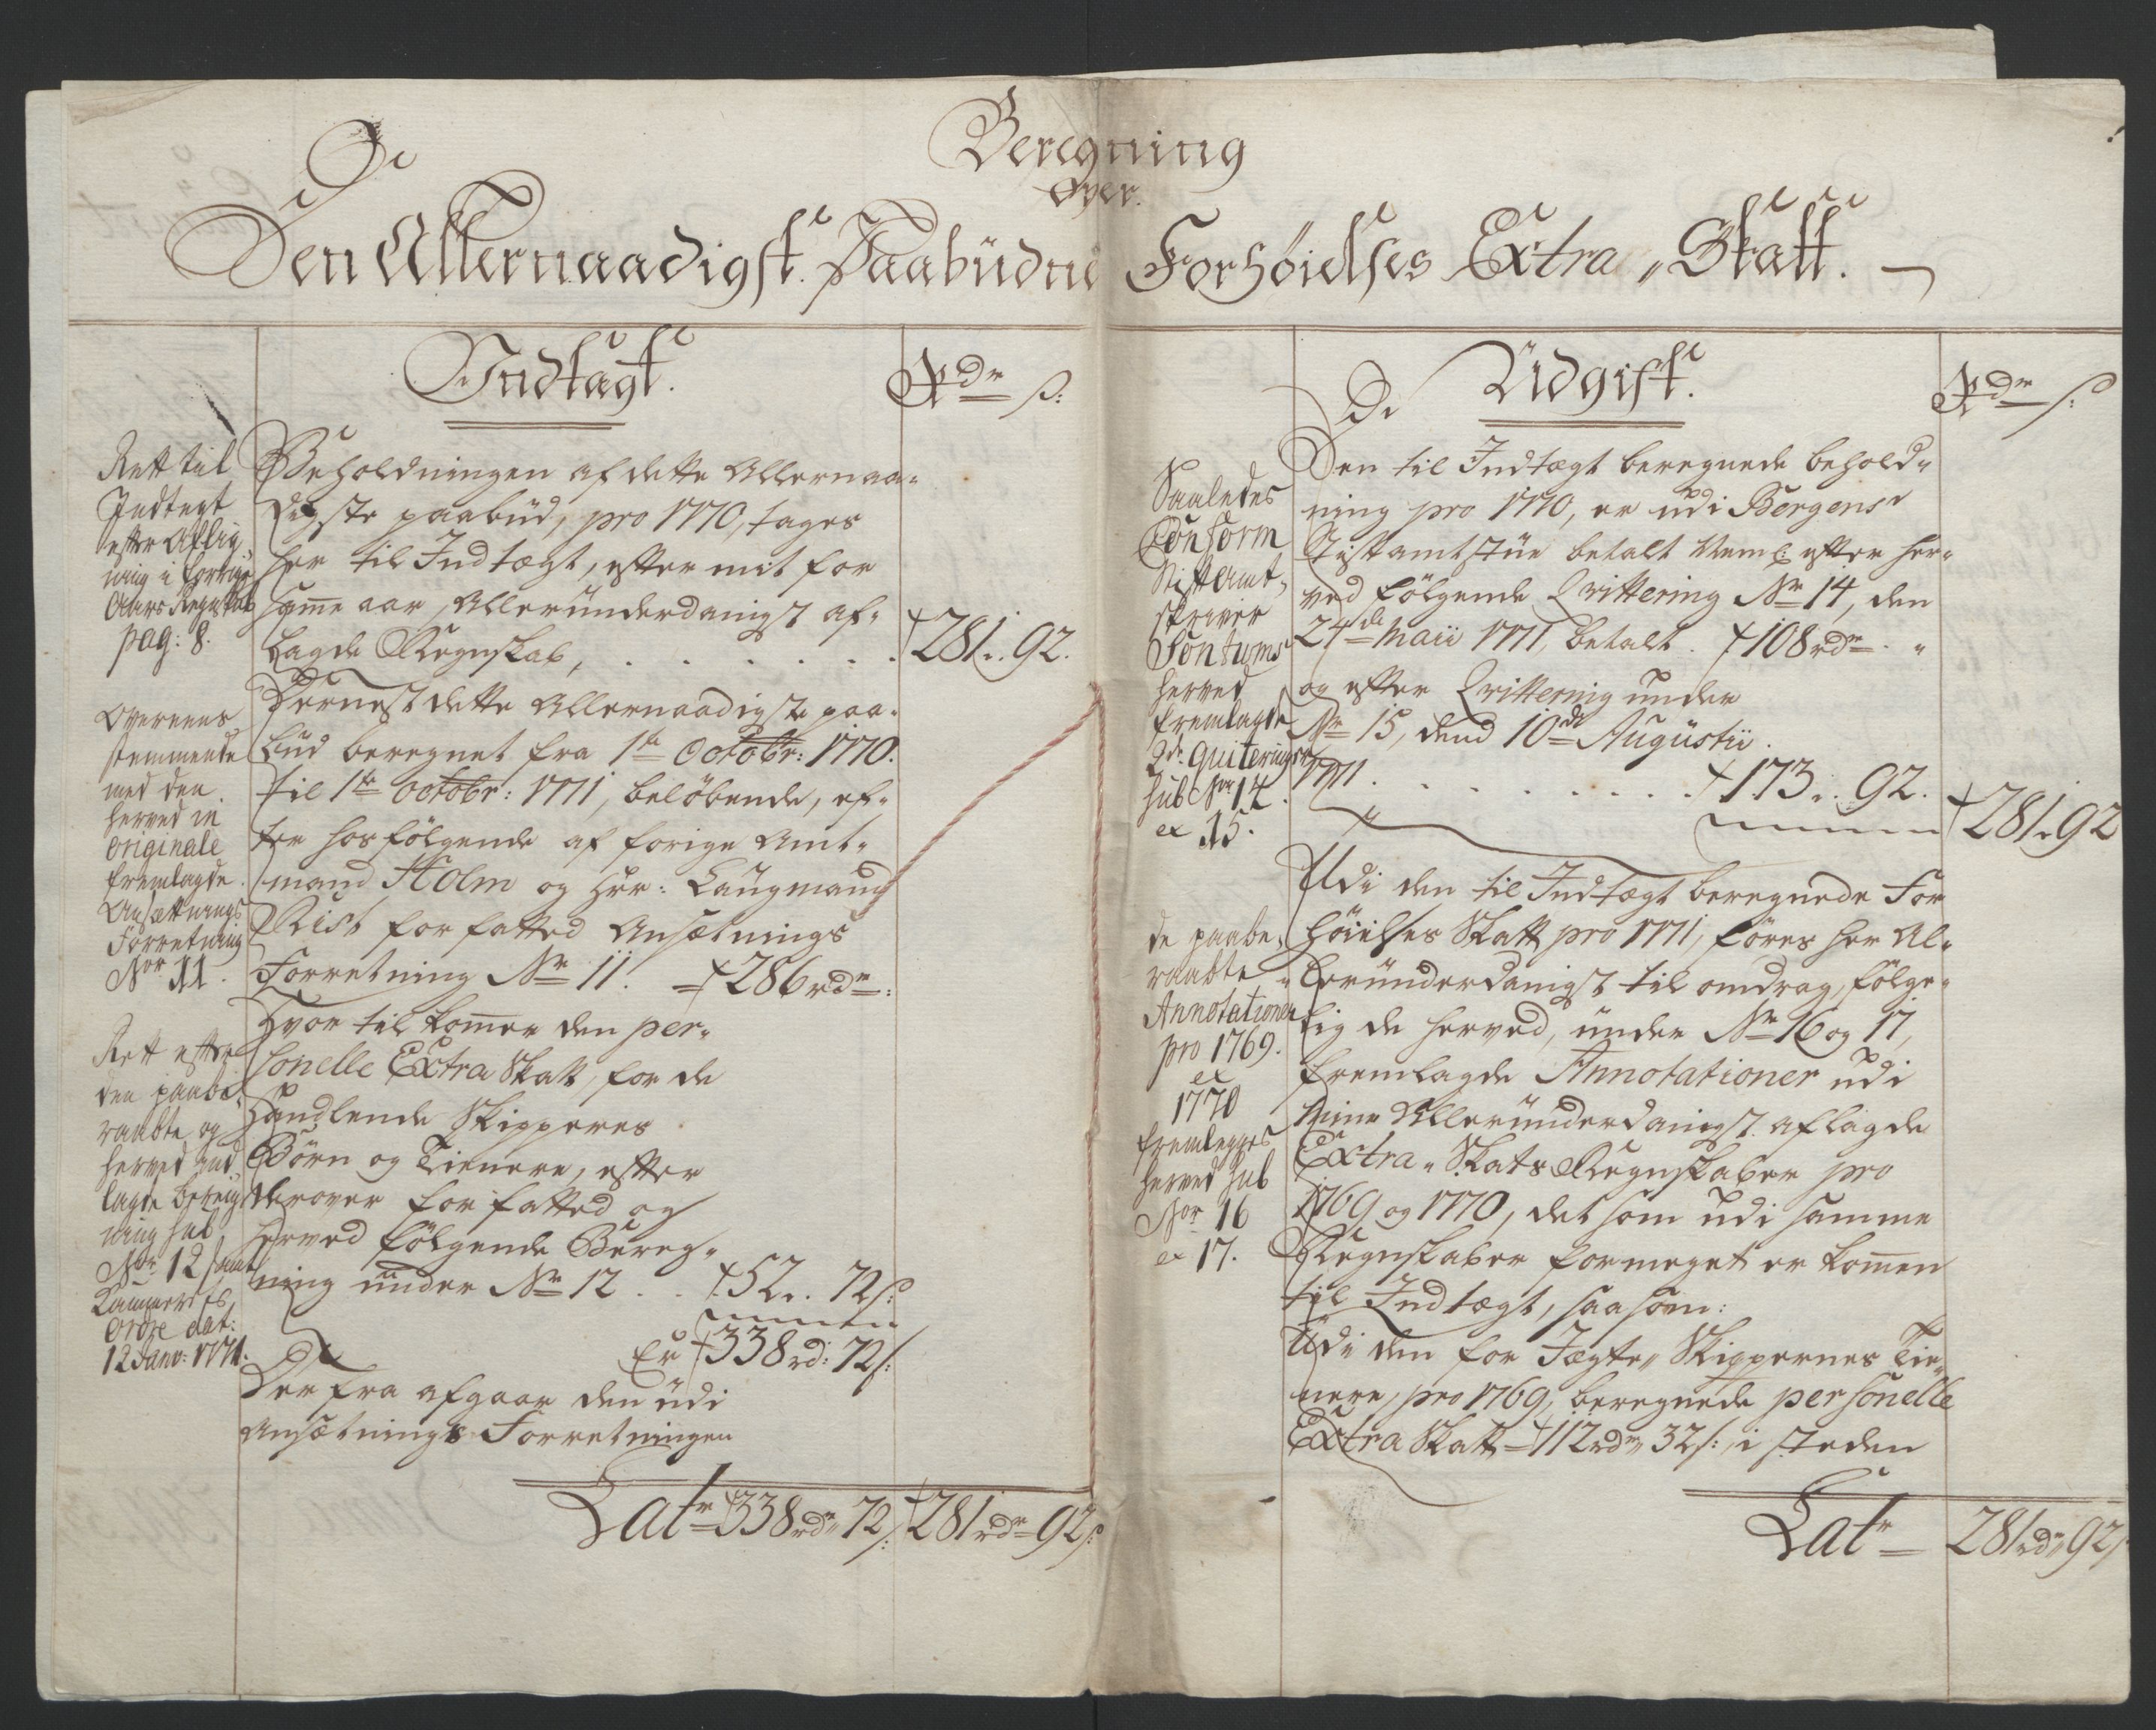 Beregning
over
Den Allernaadigst Paabüdne Forhöielses Extra Skatt.
Indtægt.
Rdr s:
Rett til
Indtegt
efter Aflig
ning i forrige
Aars Regnskab
pag: 8.
Beholdningen af dette Allernaa-
digste paabüd, pro 1770, tages
her til Indtægt, efter mit for
samme aar, Alleründerdanigst af-
lagde Regnskab, . . . . . . 281 „ 92.
Overeens
stemmende
med den
herved in
originale
fremlagde
Ansættnings
Forretning
Nor 11.
Dernest dette Allernaadigste paa-
büd beregnet fra 1te Octobr: 1770.
til 1te Octobr: 1771, belöbende, ef-
ter hosfölgende af forige Amt-
mand Holm og Hr: Laugmand
Rist forfatted Ansætnings
Forretning Nr 11. 286 rdr:
Rett efter
den paabe-
raabte og
herved ind
lagde bereg
ning sub
Nor 12 samt
Kammerets
Ordre dat:
12 Janv: 1771.
Hvor til kommer den per-
sonelle Extra Skatt, for de
Handlende Skipperes
Börn og Tienere, efter
derover forfatted og
herved fölgende Bereg-
ning ünder Nr 12 . . 52 „ 72 s:
Er 338 rd: 72 s:
Der fra afgaar den üdi
Ansætnings Forretningen
Latr 338 rdr 72 s: 281 rdr 92 s:
Üdgift.
Rdr s:
Saaledes
Conform
Stiftamt-
skriver
Fontums
herved
fremlagde
2de quiteringer
sub Nor 14.
et 15.
Den til Indtægt beregnede behold-
ning pro 1770, er üdi Bergens
Stiftamtstüe betalt Neml: efter her-
ved fölgende Qvittering Nr 14, den
24de Maii 1771, betalt . 108 rdr . „
og efter Qvittering ünder
Nr 15, dend 10de Augüstii
1771 . . . . . . . . 173 „ 92.
281 „ 92
de paabe-
raabte
Annotationer
pro 1769.
et
1770
fremlegges
herved sub
Nor 16
et 17.
Udi den til Indtægt beregnede For
höielses Skatt pro 1771, föres her Al-
leründerdanigst til omdrag, fölge-
lig de herved, ünder Nr 16 og 17,
fremlagde Annotationer üdi
mine Alleründerdanigst aflagde
Extra-Skats Regnskaber pro
1769 og 1770, det som üdi samme
Regnskaber formeget er kommen
til Indtægt, saasom:
Üdi den for Jægte-Skippernes Tie-
nere, pro 1769, beregnede personelle
Extra Skatt 112 rdr 32 s: i steden
Latr 281 rdr 92 s